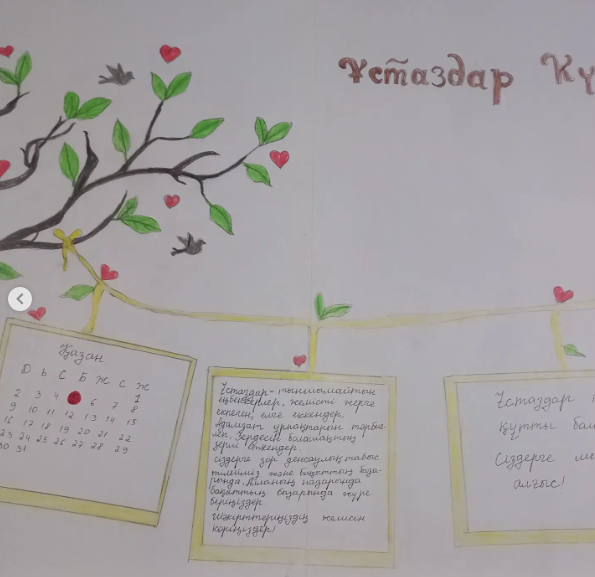 Ұстаздар Кү
Қазан
Д Ь С Б Ж С Ж
1
2 3 4 6 7 8
9 10 11 12 13 14 15
16 17 18 19 20 21 22
23 24 25 26 27 28 29
30 31
Ұстаздар - тыншымайтын
еңбеккерлер, жемісті жерге
еккен, елге
Адамзат ұрпақтарын тәрбие-
леп,
Сіздерге зор денсаулық табыс
тілейміз және бақыттың база-
рында, Алланың назарында
бақыттың базарында жүре
беріңіздер
Шәкірттеріңіздің жемісін
көріңіздер!
Ұстаздар
құтты
Сіздерге
алғыс!